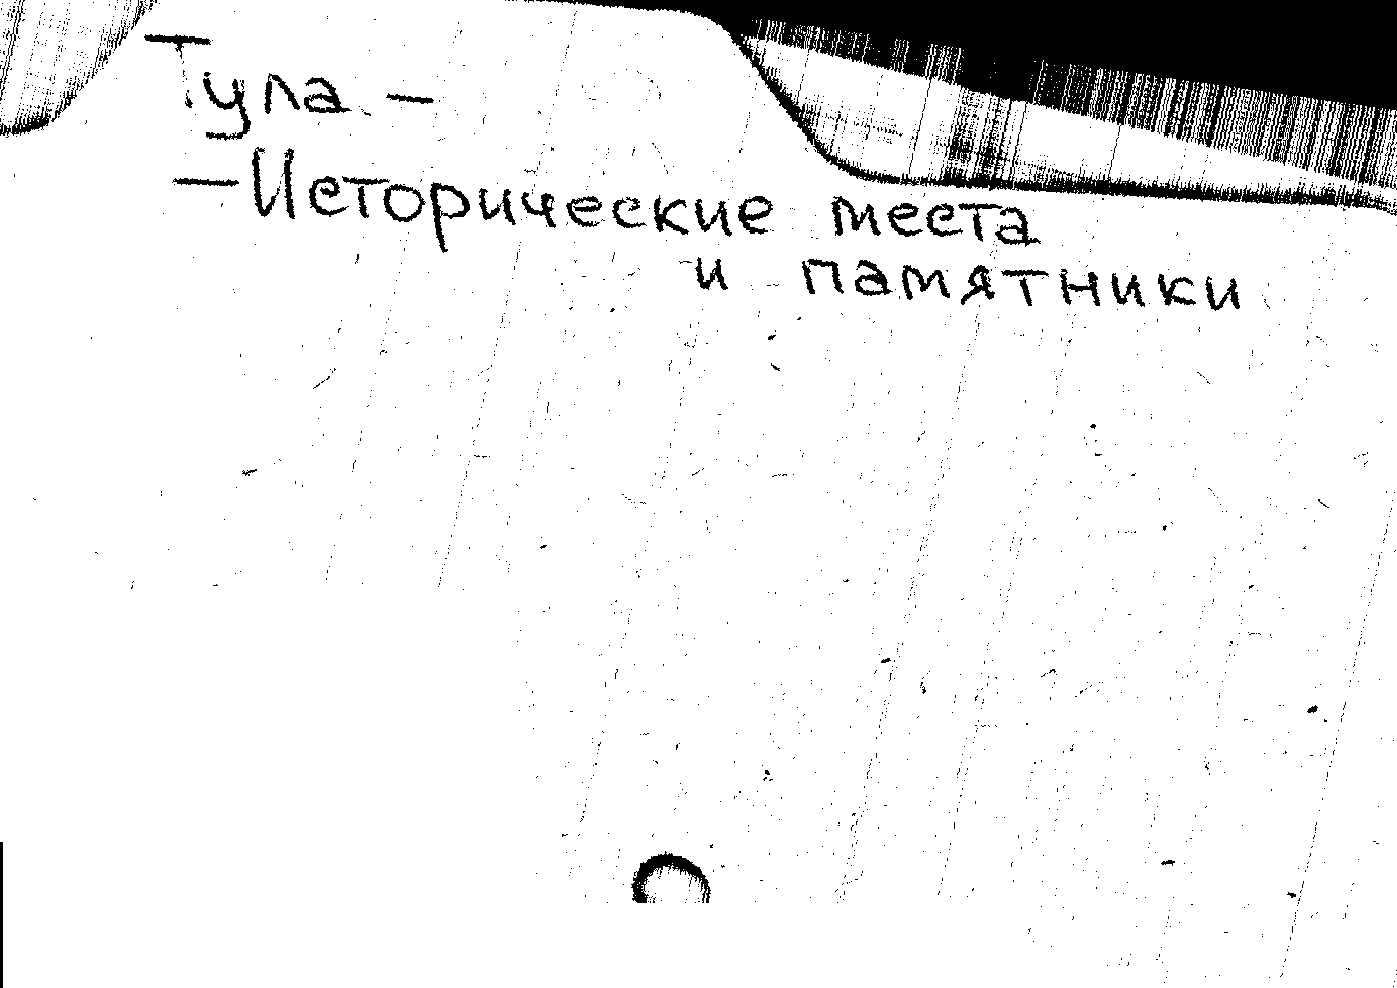 Тула —
— Исторические места
и памятники